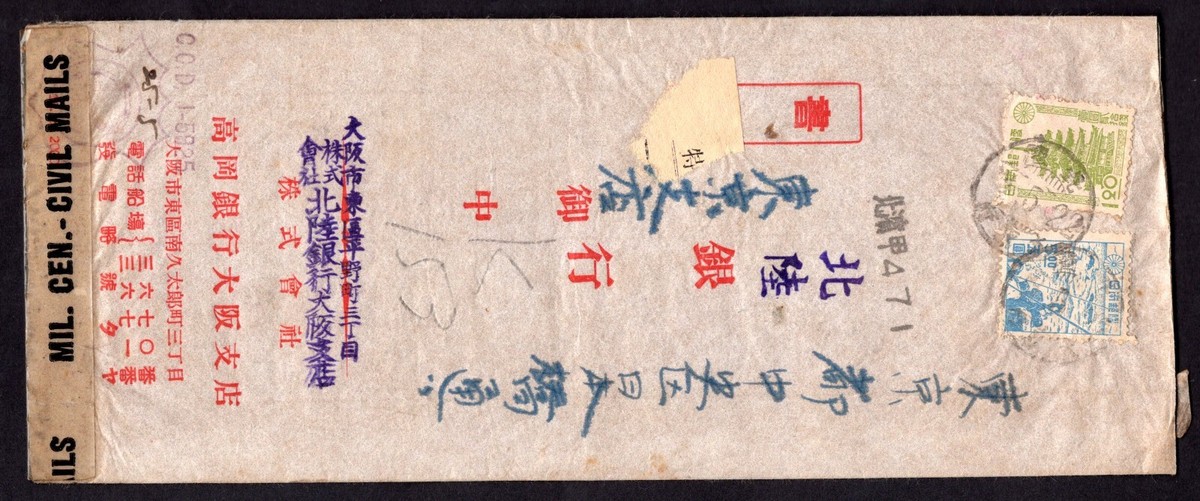 東京都中央区日本橋通
北濱甲△71
北陸
銀行
東京支店
御中
書
特
K
53
大阪市東區平野町三丁目
株式會社 北陸銀行大阪支店
株式會社
高岡銀行大阪支店
大阪市東區南久太郎町三丁目
電話船場 三六七〇番 三六七一番
發電略號タヤ
CCD J-5935
MIL. CEN.-CIVIL MAILS
ILS
日本郵便
5.00